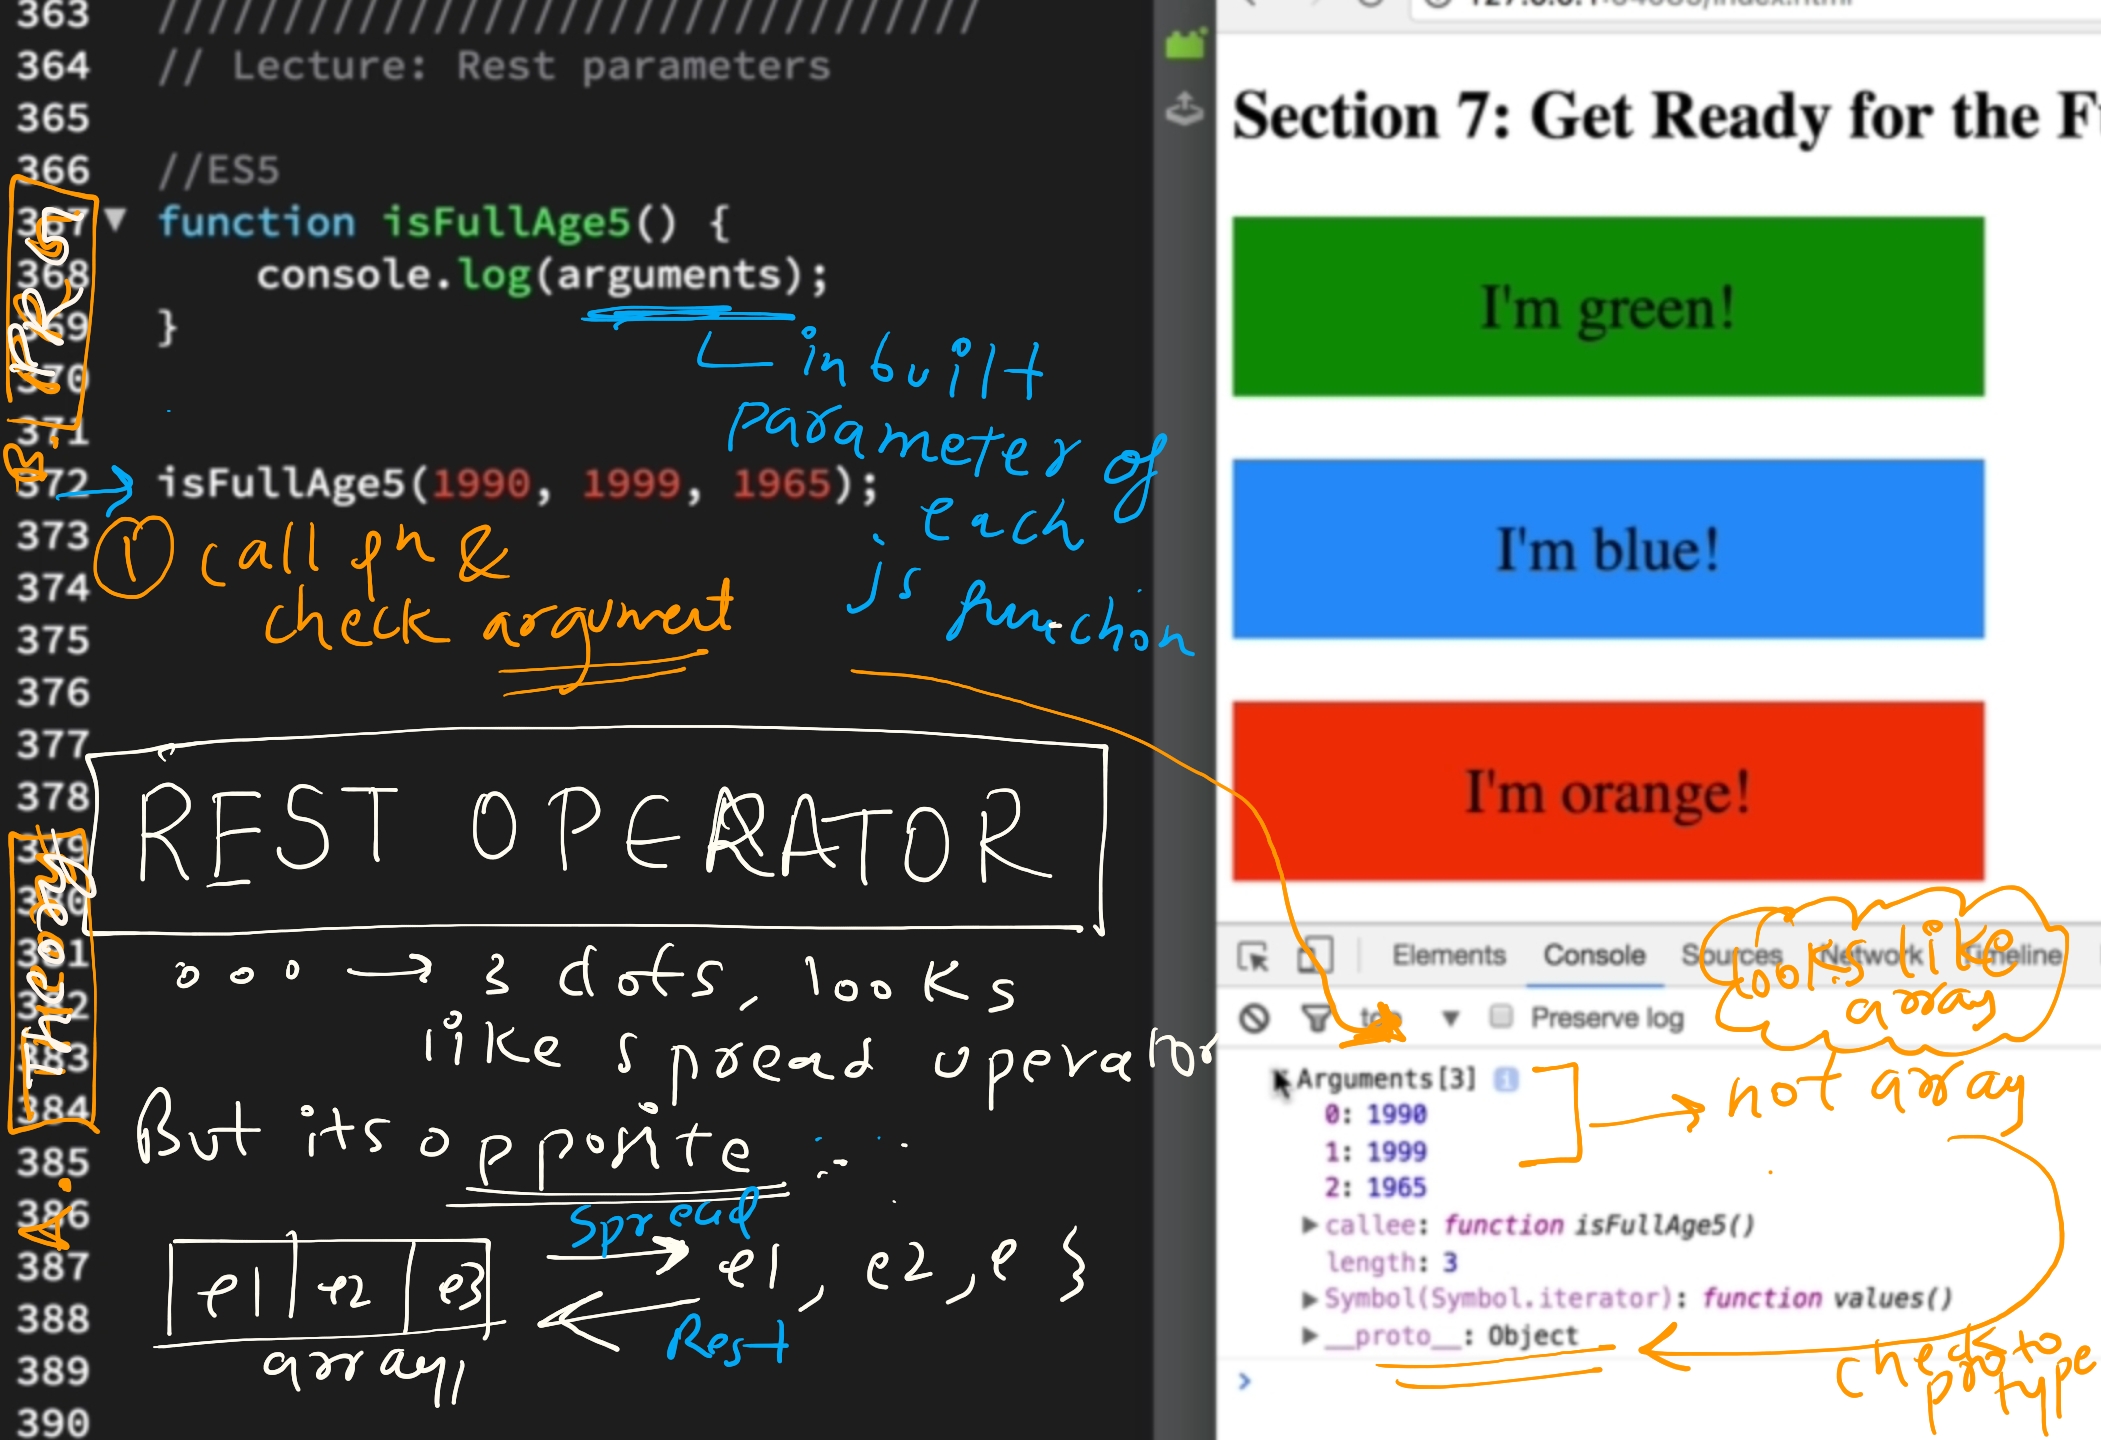 363 ////////////////////////////////
364 // Lecture: Rest parameters
365
366 //ES5
367 function isFullAge5() {
368 console.log(arguments);
369 }
370
371
372 isFullAge5(1990, 1999, 1965);
373
374
375
376
377
378
379
380
381
382
383
384
385
386
387
388
389
390
inbuilt
parameter of
each
js function
① call fn &
check argument
B. PRG1
A. Theory
REST OPERATOR
... → 3 dots, looks
like spread operator
But its opposite
Spread
e1 e2 e3 → e1, e2, e }
Rest
array
Section 7: Get Ready for the
I'm green!
I'm blue!
I'm orange!
Elements Console Sources Network Timeline
top Preserve log
looks like
array
Arguments[3]
not array
0: 1990
1: 1999
2: 1965
callee: function isFullAge5()
length: 3
Symbol(Symbol.iterator): function values()
__proto__: Object
check proto
type